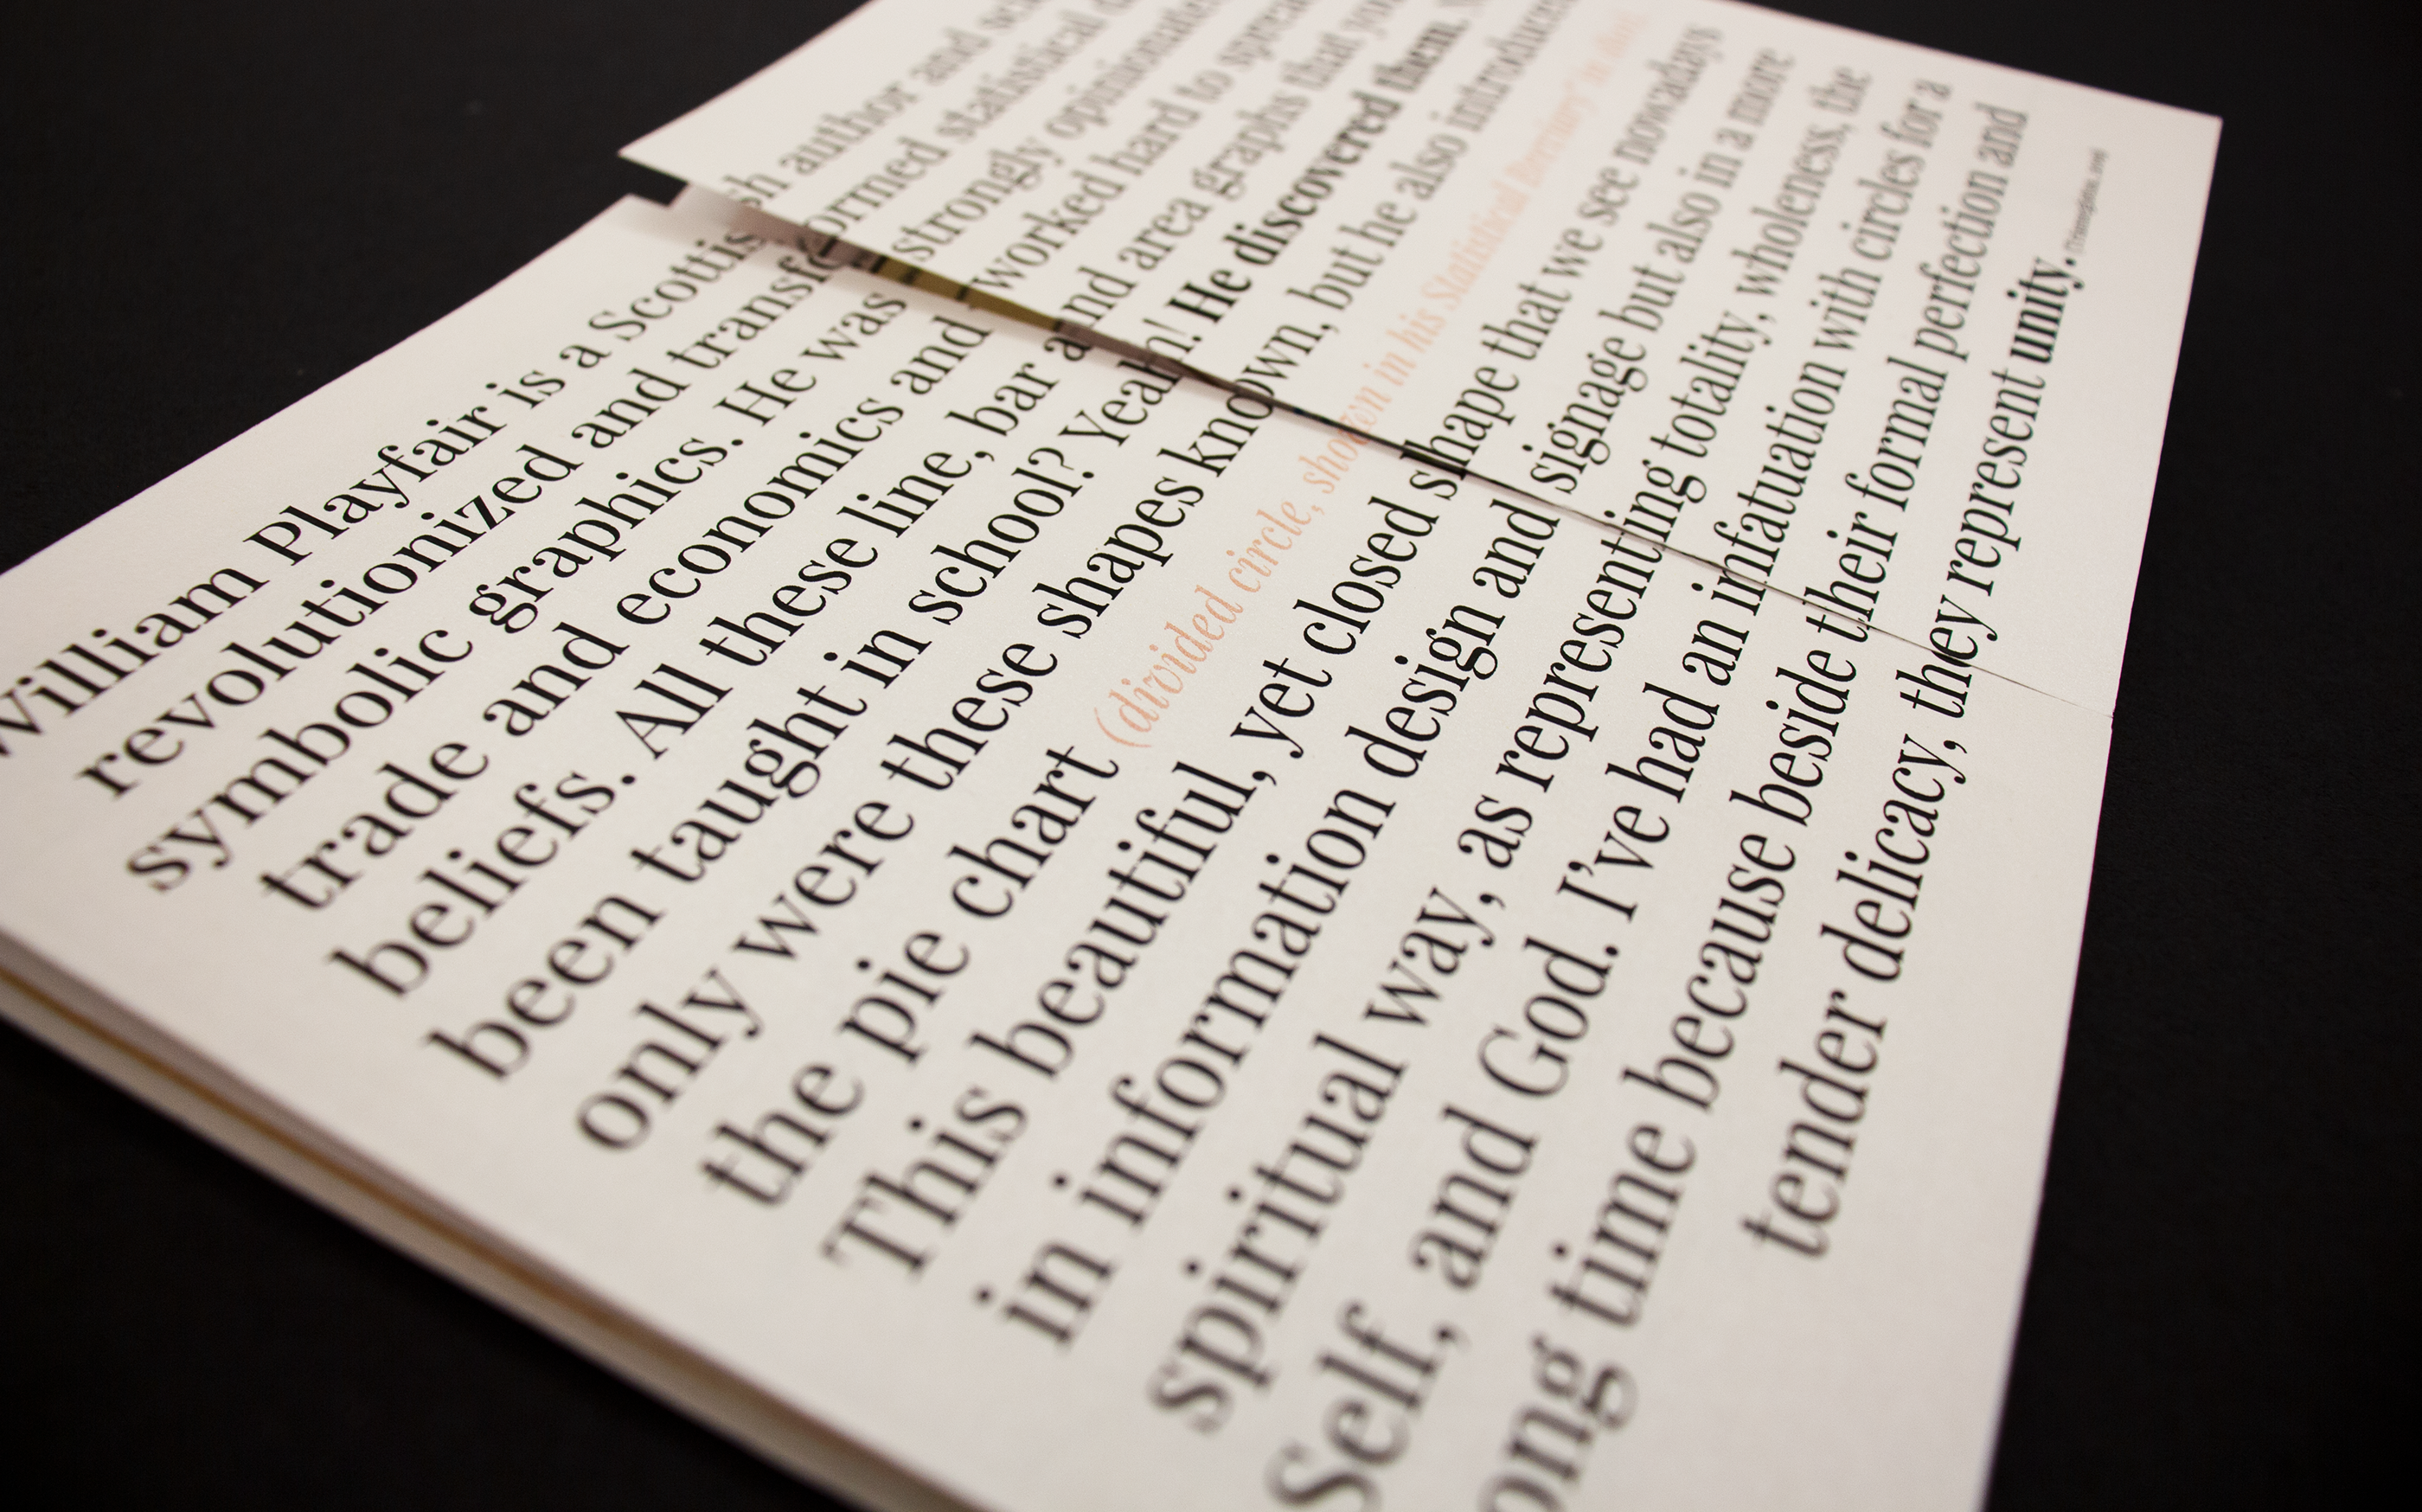 William Playfair is a Scottish author and
revolutionized and transformed statistical
symbolic graphics. He was strongly
trade and economics and worked hard to spread
beliefs. All these line, bar and area graphs that you
been taught in school? Yeah! He discovered them.
only were these shapes known, but he also introduced
the pie chart (divided circle, shown in his Statistical Breviary
This beautiful, yet closed shape that we see nowadays
in information design and signage but also in a more
spiritual way, as representing totality, wholeness, the
Self, and God. I’ve had an infatuation with circles for a
ong time because beside their formal perfection and
tender delicacy, they represent unity.